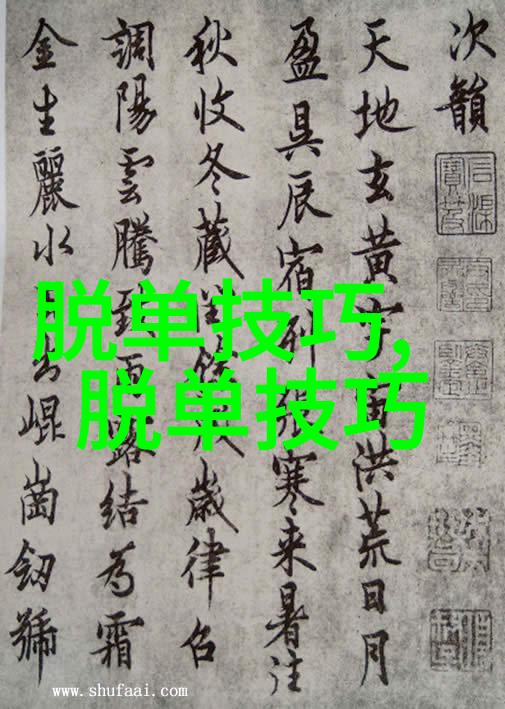 次韻
天地玄黄宇宙洪荒日月
盈昃辰宿列張寒来暑往
秋收冬藏閏餘成歳律召
調陽雲騰致雨露結為霜
金生麗水玉出崐崗劒號
脱单技巧,
脱单技巧
www.shufaai.com